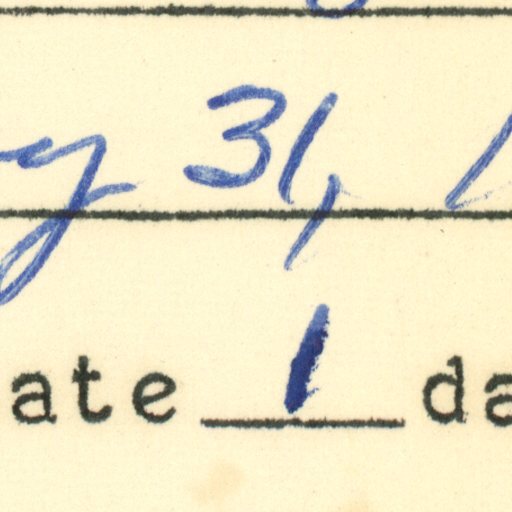 y 31, 1
ate 1 da